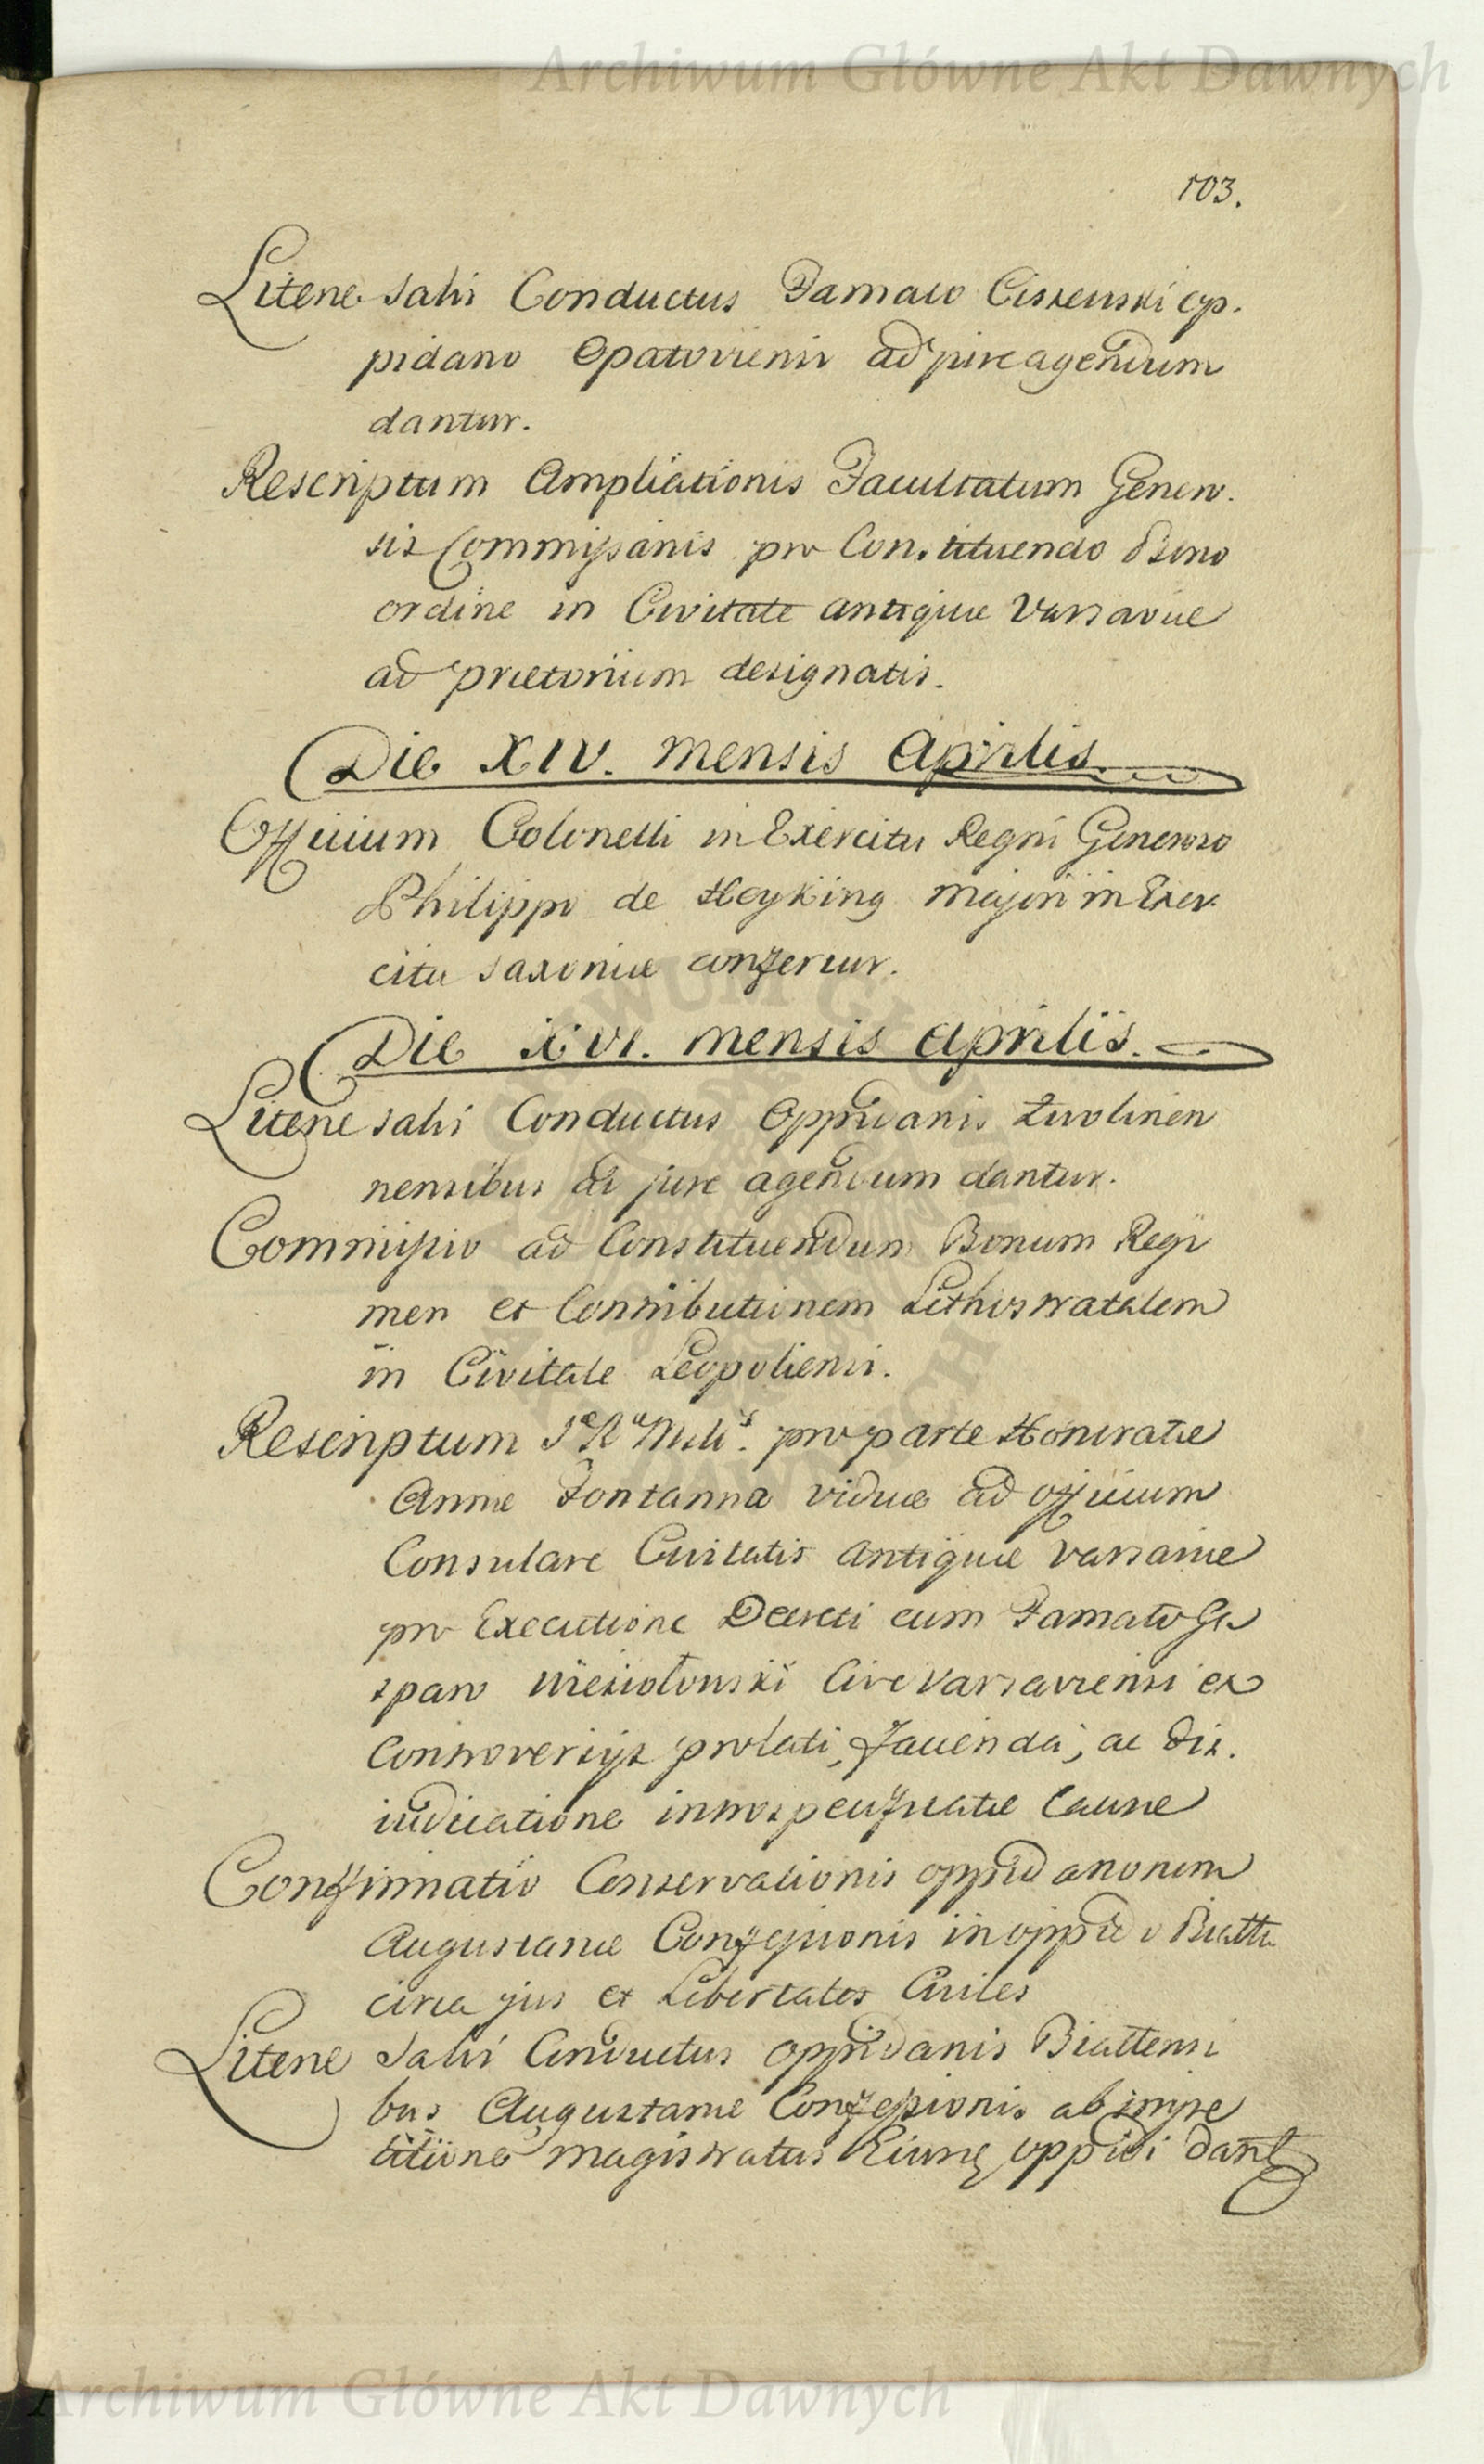 Archiwum Główne Akt Dawnych
103.
Literæ salvi Conductus Famato Ciszewski op-
pidano Opatoviensi ad jure agendum
dantur.
Rescriptum Ampliationis Facultatum Genero-
sis Commissariis pro Constituendo Bono
ordine in Civitate antiquæ Varsaviæ
ad prætorium designatis.
Die XIV. mensis Aprilis.
Officium Colonelli in Exercitu Regni Generoso
Philippo de Heyking majori in Exer-
citu Saxoniæ confertur.
Die XVI. mensis Aprilis.
Literæ salvi Conductus Oppidanis Zwolinen
nensibus ad jure agendum dantur.
Commissio ad Constituendum Bonum Regi
men et Contributionem Lithostratalem
in Civitate Leopoliensi.
Rescriptum Sæ Ræ Mtis. pro parte Honoratæ
Annæ Fontanna viduæ ad officium
Consulare Civitatis Antiquæ Varsaviæ
pro Executione Decreti cum Famato Ga
sparo Wiesiołowski Cive Varsaviensi ex
Controversijs prolati, facienda, ac Di-
iudicatione introspecificatæ Causæ
Confirmatio Conservationis oppidanorum
Augustanæ Confessionis in oppido Biatta
circa jus et Libertates Civiles
Literæ Salvi Conductus oppidanis Biattensi
bus Augustanæ Confessionis ab impe
titione magistratus Eiusq oppidi dant
Archiwum Główne Akt Dawnych